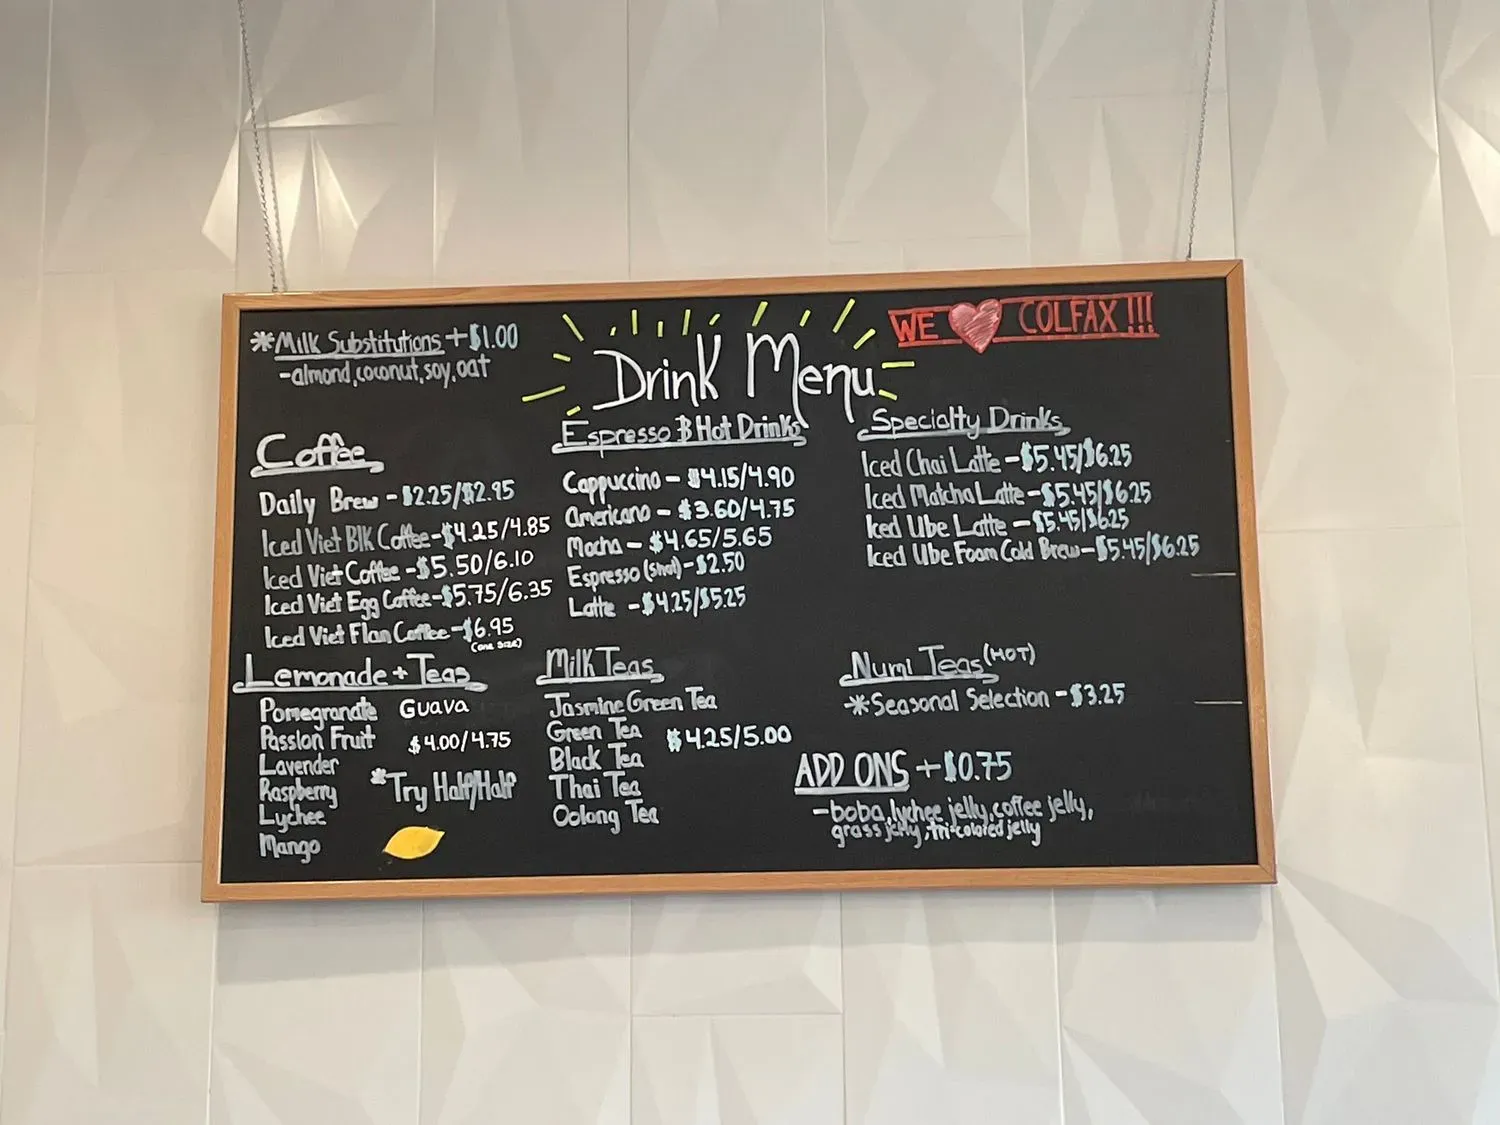 *Milk Substitutions +$1.00
-almond,coconut,soy,oat
Drink Menu
WE COLFAX!!!
Coffee
Daily Brew - $2.25/$2.95
Iced Viet Blk Coffee-$4.25/4.85
Iced Viet Coffee -$5.50/6.10
Iced Viet Egg Coffee-$5.75/6.35
Iced Viet Flan Coffee-$6.95
(one size)
Espresso & Hot Drinks
Cappuccino - $4.15/4.90
Americano - $3.60/4.75
Mocha - $4.65/5.65
Espresso (shot)-$2.50
Latte -$4.25/$5.25
Specialty Drinks
Iced Chai Latte -$5.45/$6.25
Iced Matcha Latte-$5.45/$6.25
Iced Ube Latte -$5.45/$6.25
Iced Ube Foam Cold Brew-$5.45/$6.25
Lemonade + Teas
Pomegranate Guava
Passion Fruit $4.00/4.75
Lavender
Raspberry *Try Half/Half
Lychee
Mango
Milk Teas
Jasmine Green Tea
Green Tea $4.25/5.00
Black Tea
Thai Tea
Oolong Tea
Numi Teas (HOT)
*Seasonal Selection -$3.25
ADD ONS +$0.75
-boba,lychee jelly,coffee jelly,
grass jelly,tri-colored jelly